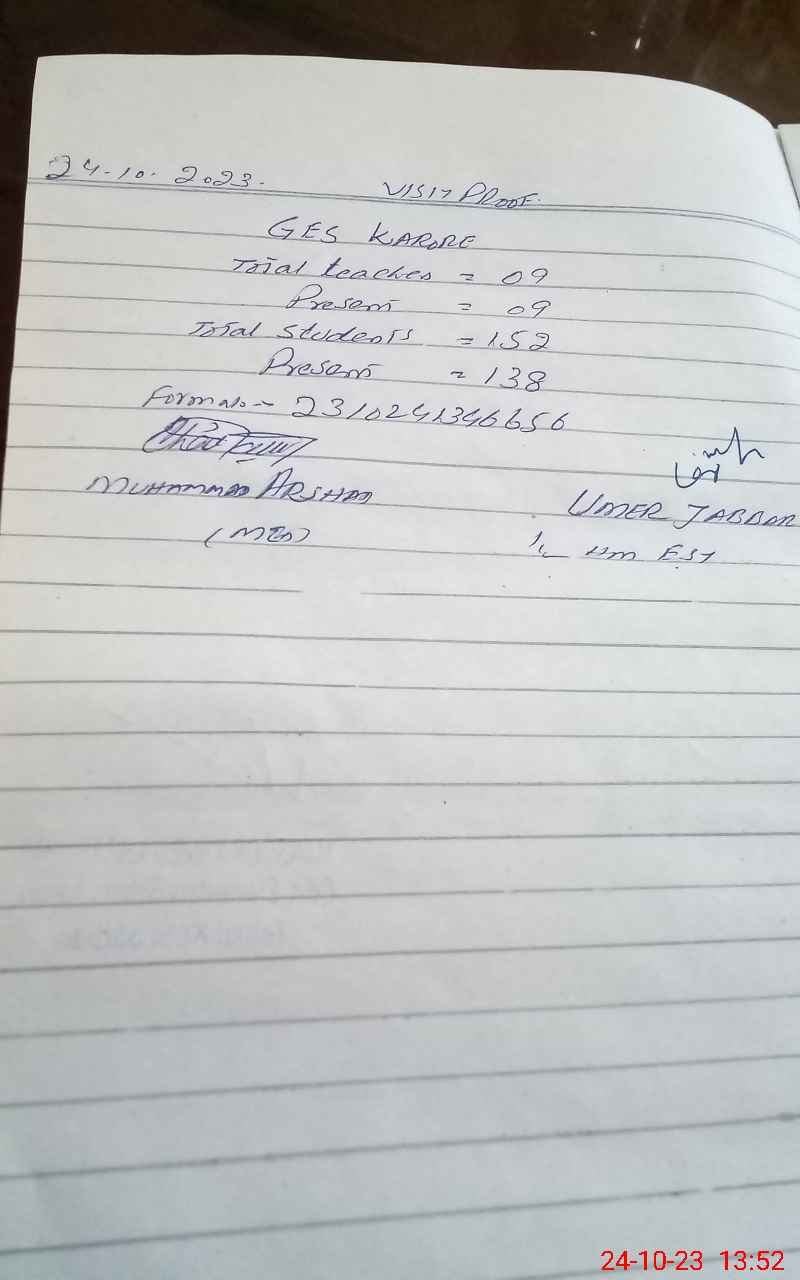 24.10.2023. VISIT PROOF.
GES KARORE
Total teaches = 09
Present = 09
Total Students = 152
Present = 138
Form no:- 2310241346656
MUHAMMAD ARSHAD UMER JABBAR
(MEA) HM EST
24-10-23 13:52